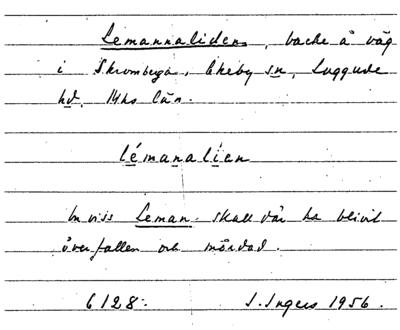 Lemannaliden, backe å väg
i Skromberga, Ekeby sn, Luggude
hd, Mhs län.
lémanalíen
En viss Leman- skall där ha blivit
överfallen och mördad.
6128:
I. Ingers 1956.